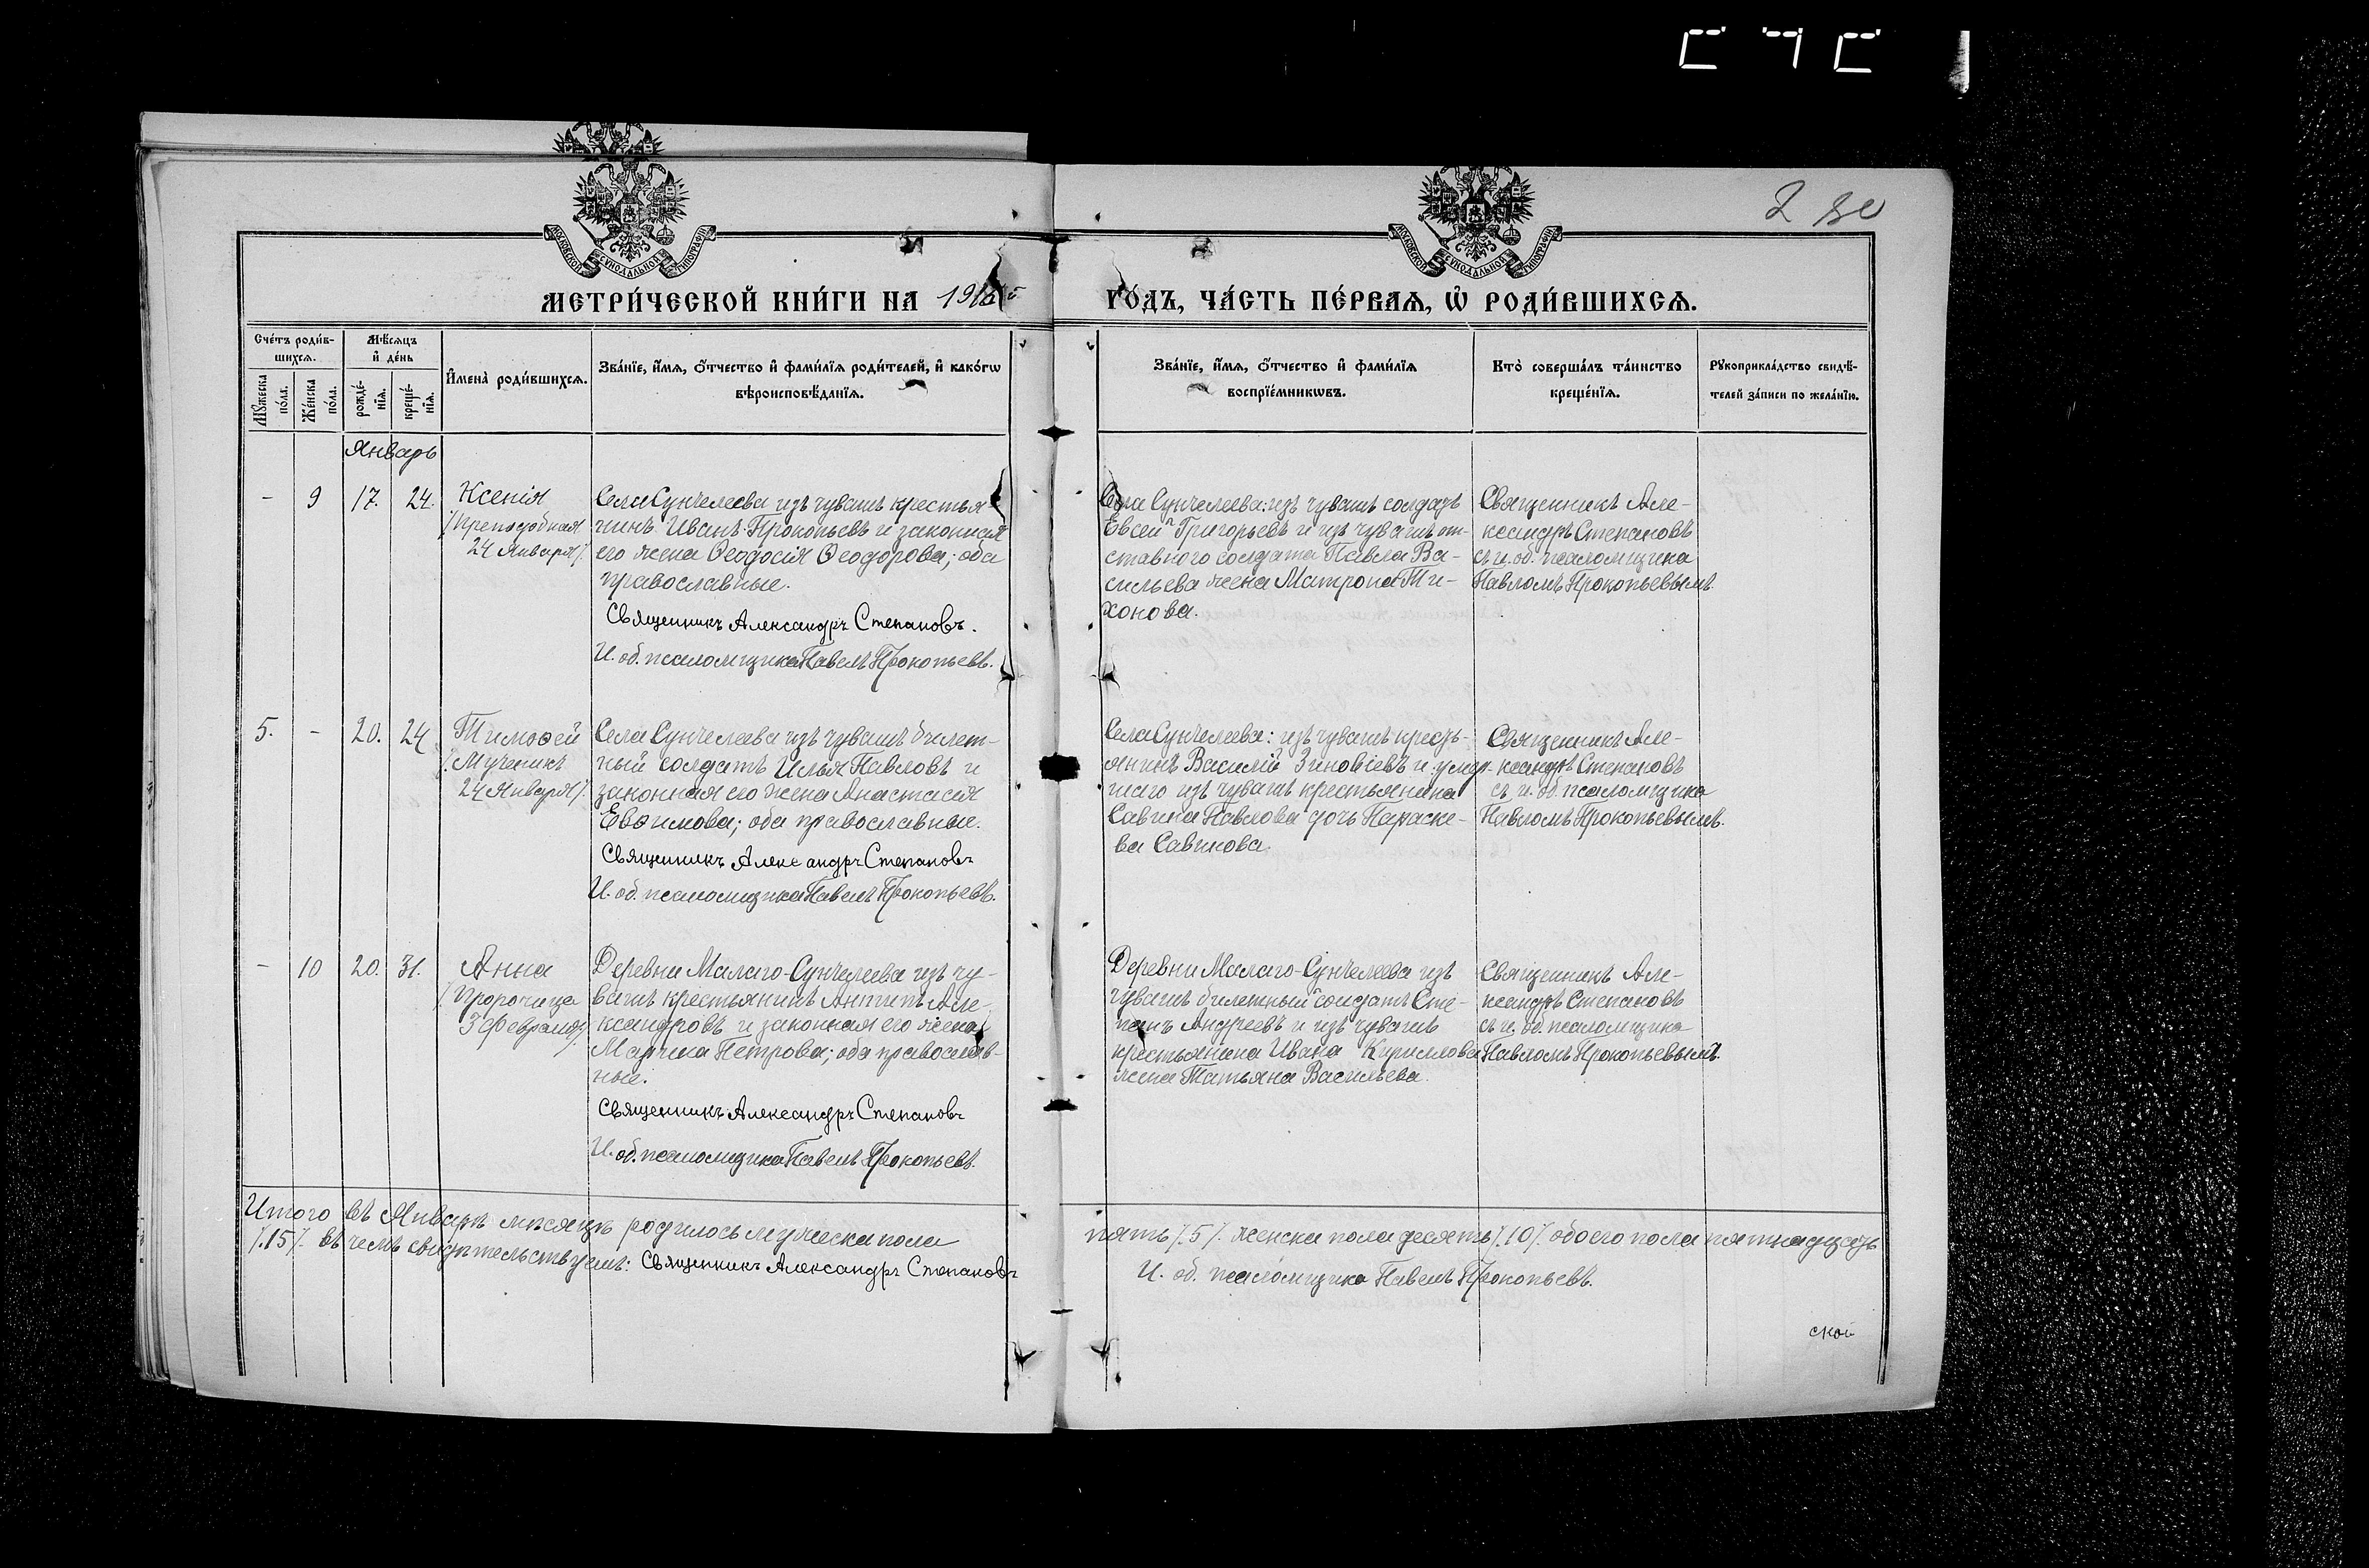 МЕТРИ́ЧЕСКОЙ КНИ́ГИ НА 1915
ГО́ДЪ, ЧА́СТЬ ПЕ́РВАЯ, Ѿ РОДИ́ВШИХСЯ.
МОСКОВСКОЙ СУНОДАЛЬНОЙ ТИПОГРАФІИ
МОСКОВСКОЙ СУНОДАЛЬНОЙ ТИПОГРАФІИ
Сче́тъ роди́в-
шихся.
Му́жеска по́ла.
Же́нска по́ла.
Мѣ́сяцъ
и де́нь
рожде́-
нія.
креще́-
нія.
Имена̀ роди́вшихся.
Зва́нїе, и́мя, о́тчество и фами́лїя роди́телей, и како́гѡ
вѣроисповѣ́данїя.
Зва́нїе, и́мя, о́тчество и фами́лїя
воспрїе́мникѡвъ.
Кто̀ соверша́лъ та́инство
креще́нїя.
Рукоприкла́дство свидѣ́-
телей за́писи по жела́нїю.
Январь
- 9 17. 24.
Ксенія
/Преподобная
24 Января/.
Села Сунчелеева изъ чувашъ крестья-
нинъ Иванъ Прокопьевъ и законная
его жена Ѳеодосія Ѳеодорова; оба
православные.
Священникъ Александръ Степановъ.
И. об. псаломщика Павелъ Прокопьевъ.
Села Сунчелеева: изъ чувашъ солдатъ
Евсей Григорьевъ и изъ чувашъ от-
ставного солдата Павла Ва-
сильева жена Матрона Ти-
хонова.
Священникъ Але-
ксандръ Степановъ
съ и. об. псаломщика
Павломъ Прокопьевымъ.
5. - 20. 24
Тимоѳей
/Мученикъ
24 Января/.
Села Сунчелеева изъ чувашъ билет-
ный солдатъ Илья Павловъ и
законная его жена Анастасія
Евѳимова; оба православные.
Священникъ Александръ Степановъ
И. об. псаломщика Павелъ Прокопьевъ.
Села Сунчелеева: изъ чувашъ кресть-
янинъ Василій Зиновіевъ и умер-
шаго изъ чувашъ крестьянина
Савина Павлова дочь Параске-
ва Савинова.
Священникъ Але-
ксандръ Степановъ
съ и. об. псаломщика
Павломъ Прокопьевымъ.
- 10 20. 31.
Анна
/Пророчица
3 Февраля/.
Деревни Малаго-Сунчелеева изъ чу-
вашъ крестьянинъ Антипъ Але-
ксандровъ и законная его жена
Марина Петрова; оба православ-
ные.
Священникъ Александръ Степановъ
И. об. псаломщика Павелъ Прокопьевъ.
Деревни Малаго-Сунчелеева изъ
чувашъ билетный солдатъ Сте-
панъ Андреевъ и изъ чувашъ
крестьянина Ивана Кириллова
жена Татьяна Васильева.
Священникъ Але-
ксандръ Степановъ
съ и. об. псаломщика
Павломъ Прокопьевымъ.
Итого въ Январѣ мѣсяцѣ родилось мужеска пола
пять /.5/. женска пола десять /.10/. обоего пола пятнадцать
/.15/. въ чемъ свидѣтельствуемъ: Священникъ Александръ Степановъ
И. об. псаломщика Павелъ Прокопьевъ.
ской